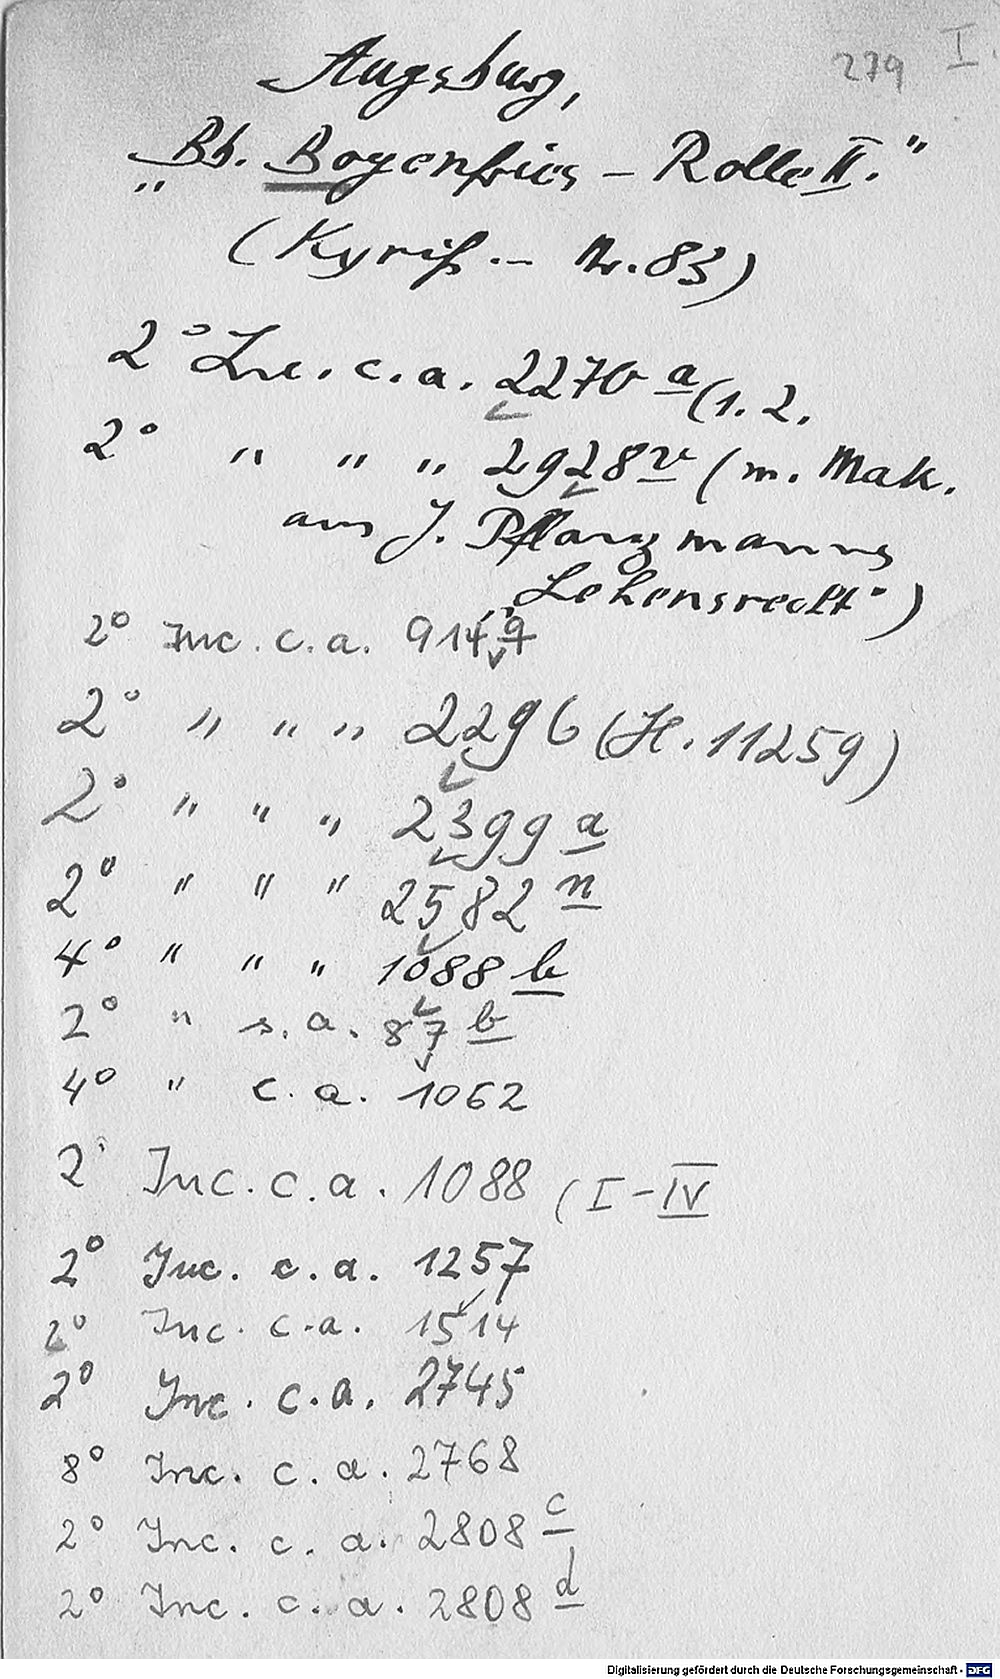 279 I.
Augsburg,
"Bb. Bogenfries - Rolle II."
(Kyriß. - Nr. 83)
2° Inc. c. a. 2270 a (1. 2.
2° " " " 2928 v (m. Mak.
aus J. Pflanzmanns
"Lehensrecht")
2° Inc. c. a. 914 g
2° " " " 2296 (H. 11259)
2° " " " 2399 a
2° " " " 2582 n
4° " " " 1088 b
2° " s. a. 87 b
4° " c. a. 1062
2° Inc. c. a. 1088 (I - IV
2° Inc. c. a. 1257
2° Inc. c. a. 1514
2° Inc. c. a. 2745
8° Inc. c. a. 2768
2° Inc. c. a. 2808 c
2° Inc. c. a. 2808 d
Digitalisierung gefördert durch die Deutsche Forschungsgemeinschaft - DFG